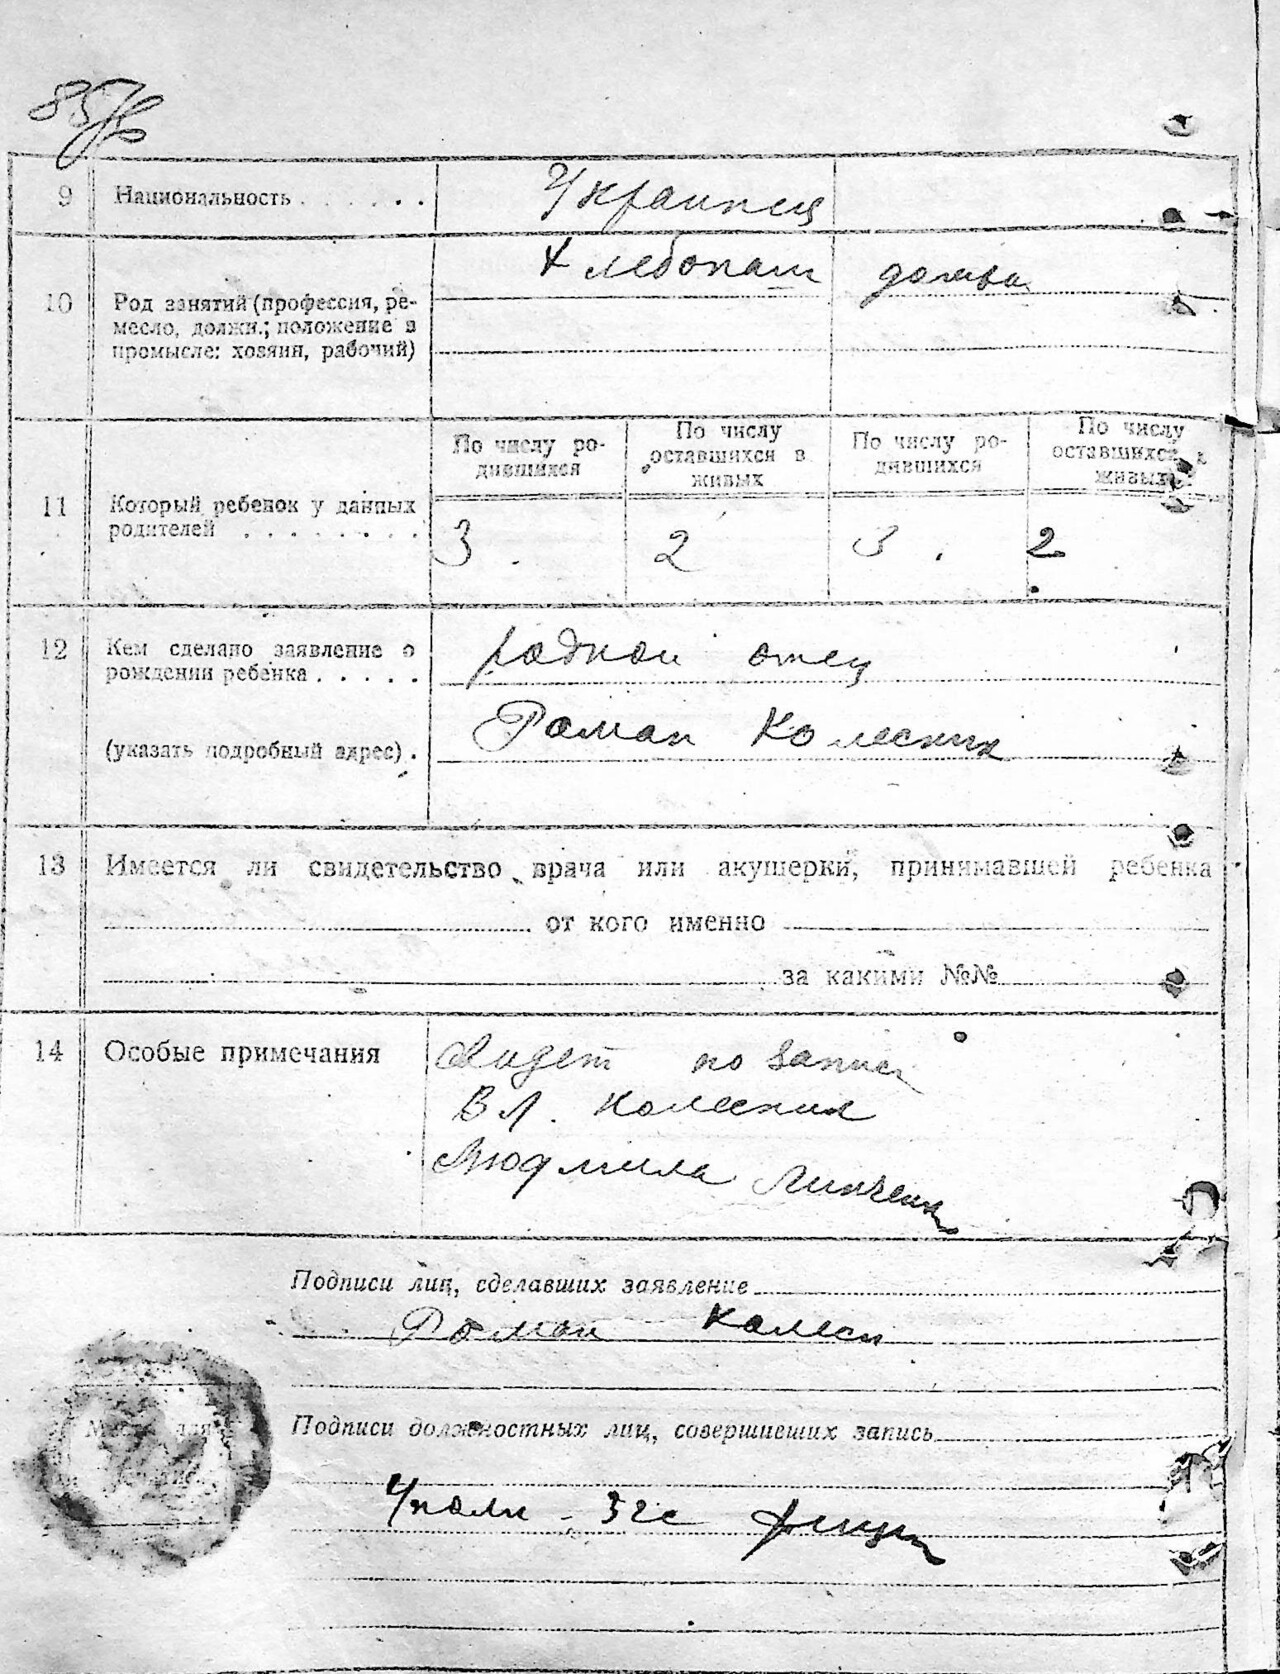 85
9 Национальность . . . . . . Украинец
Хлебопаш домхоз
10 Род занятий (профессия, ре-
месло, должн.; положение в
промысле: хозяин, рабочий)
По числу ро-
дившихся
По числу
оставшихся в
живых
По числу ро-
дившихся
По числу
оставшихся в
живых
11 Который ребенок у данных
родителей . . . . . . . .
3 . 2 3 . 2
12 Кем сделано заявление о
рождении ребенка . . . . .
родной отец
(указать подробный адрес) .
Роман Колесник
13 Имеется ли свидетельство врача или акушерки, принимавшей ребенка
от кого именно
за какими №№
14 Особые примечания
Свидет по записи
Вл. Колесник
Людмила
Подписи лиц, сделавших заявление
Роман Колесн
Место для
Подписи должностных лиц, совершивших запись
Уполн. Згс